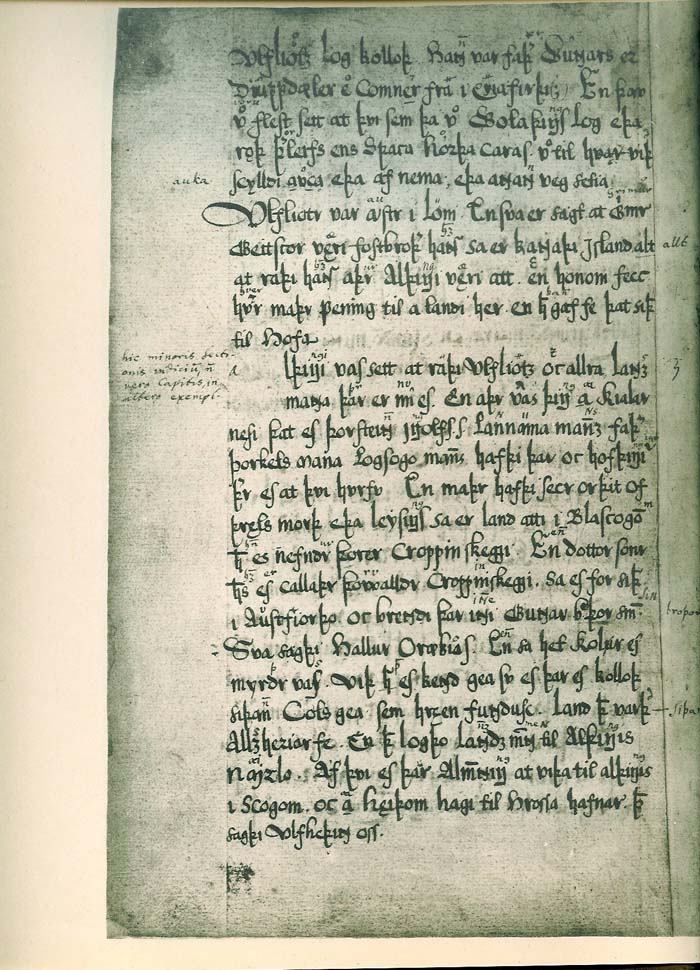 Vlfliótz log kolloþ. Hann var faþer Gunnars er
Diúpdæler ero Comner frá i Eyiafirþi. En þav
voro flest sett at þvi sem þa voro Golaþings Log eþa
roþ þorleifs ens Spaca Horþa Caras. voro til hvar viþ
auka
scylldi auca eþa af nema, eþa annan veg setia
Vlfliotr var austr i Lom. En sva er sagt at Grimr
Geittscor veri fostbroþer hans sa er kannaþi Island alt
allt
at raþi hans aþr Alþingi veri att. en honom fecc
hverr maþr pening til a landi her. en hann gaf fe þat siþan
til Hofa
hic minoris secti-
onis indiciũ, ñ
vero Capitis, in
altero exempl.
Alþingi vas sett at raþi Vlfliótz oc allra Lanz
manna þar er nu es. En aþr vas þing a Kialar
nesi þat es þorsteinn Ingolfs S. Lannáma manz faþer
þorkels mana Logsogo manns hafþi þar oc hofþingiar
þeir es at þvi hvrfv. En maþr hafþi secr orþit of
þręls morþ eþa leysings sa er land atti i Blascogom
hann es nefndr þorer Croppin skeggi. En dottor sonr
hans es callaþr þorvalldr Croppinskeggi. sa es for siþan
i Austfiorþo. oc brendi þar inni Gunnar broþor sinn.
Sva sagþi Hallur Orækias. En sa het Kolur es
myrdr vas. viþ hann es kend gea sv es þar es kolloþ
siþan Cols gea sem hræen fundusc. Land þat varþ
siþan
Allzheriar fe. En þat logþo Landz menn til Alþingis
nayzlo. Af þvi es þar Almenning at viþa til alþingis
i Scogom. oc a heiþom hagi til Hrossa hafnar. þat
sagþi Vlfheþinn oss.